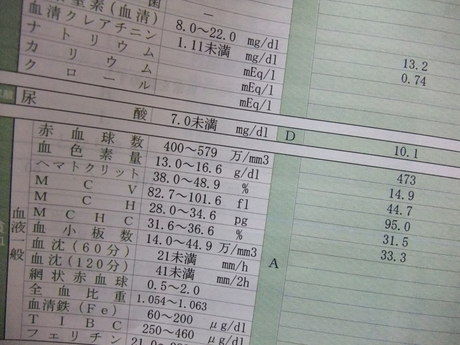 素(血清) 8.0～22.0 mg/dl 13.2
血清クレアチニン 1.11未満 mg/dl 0.74
ナトリウム mEq/l
カリウム mEq/l
クロール mEq/l
尿酸 7.0未満 mg/dl D 10.1
血液一般
赤血球数 400～579 万/mm3 473
血色素量 13.0～16.6 g/dl 14.9
ヘマトクリット 38.0～48.9 % 44.7
MCV 82.7～101.6 fl 95.0
MCH 28.0～34.6 pg 31.5
MCHC 31.6～36.6 % A 33.3
血小板数 14.0～44.9 万/mm3
血沈(60分) 21未満 mm/h
血沈(120分) 41未満 mm/2h
網状赤血球 0.5～2.0
全血比重 1.054～1.063
血清鉄(Fe) 60～200 μg/dl
TIBC 250～460 μg/dl
フェリチン